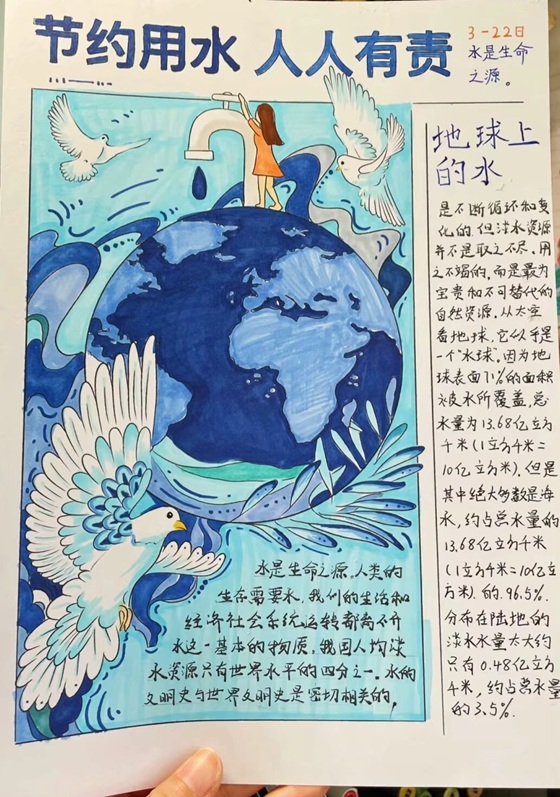 节约用水 人人有责
3-22日
水是生命
之源。
地球上
的水
是不断循环和变
化的.但淡水资源
并不是取之不尽、用
之不竭的,而是最为
宝贵和不可替代的
自然资源.从太空
看地球,它似乎是
一个"水球",因为地
球表面71%的面积
被水所覆盖,总
水量为13.68亿立方
千米(1立方千米=
10亿立方米),但是
其中绝大多数是海
水,约占总水量的
13.68亿立方千米
(1立方千米=10亿立
方米)的.96.5%.
分布在陆地的
淡水水量大大约
只有0.48亿立方
千米,约占总水量
的3.5%.
水是生命之源。人类的
生存需要水,我们的生活和
经济社会系统运转都离不开
水这一基本的物质,我国人均淡
水资源只有世界水平的四分之一。水的
文明史与世界文明史是密切相关的,